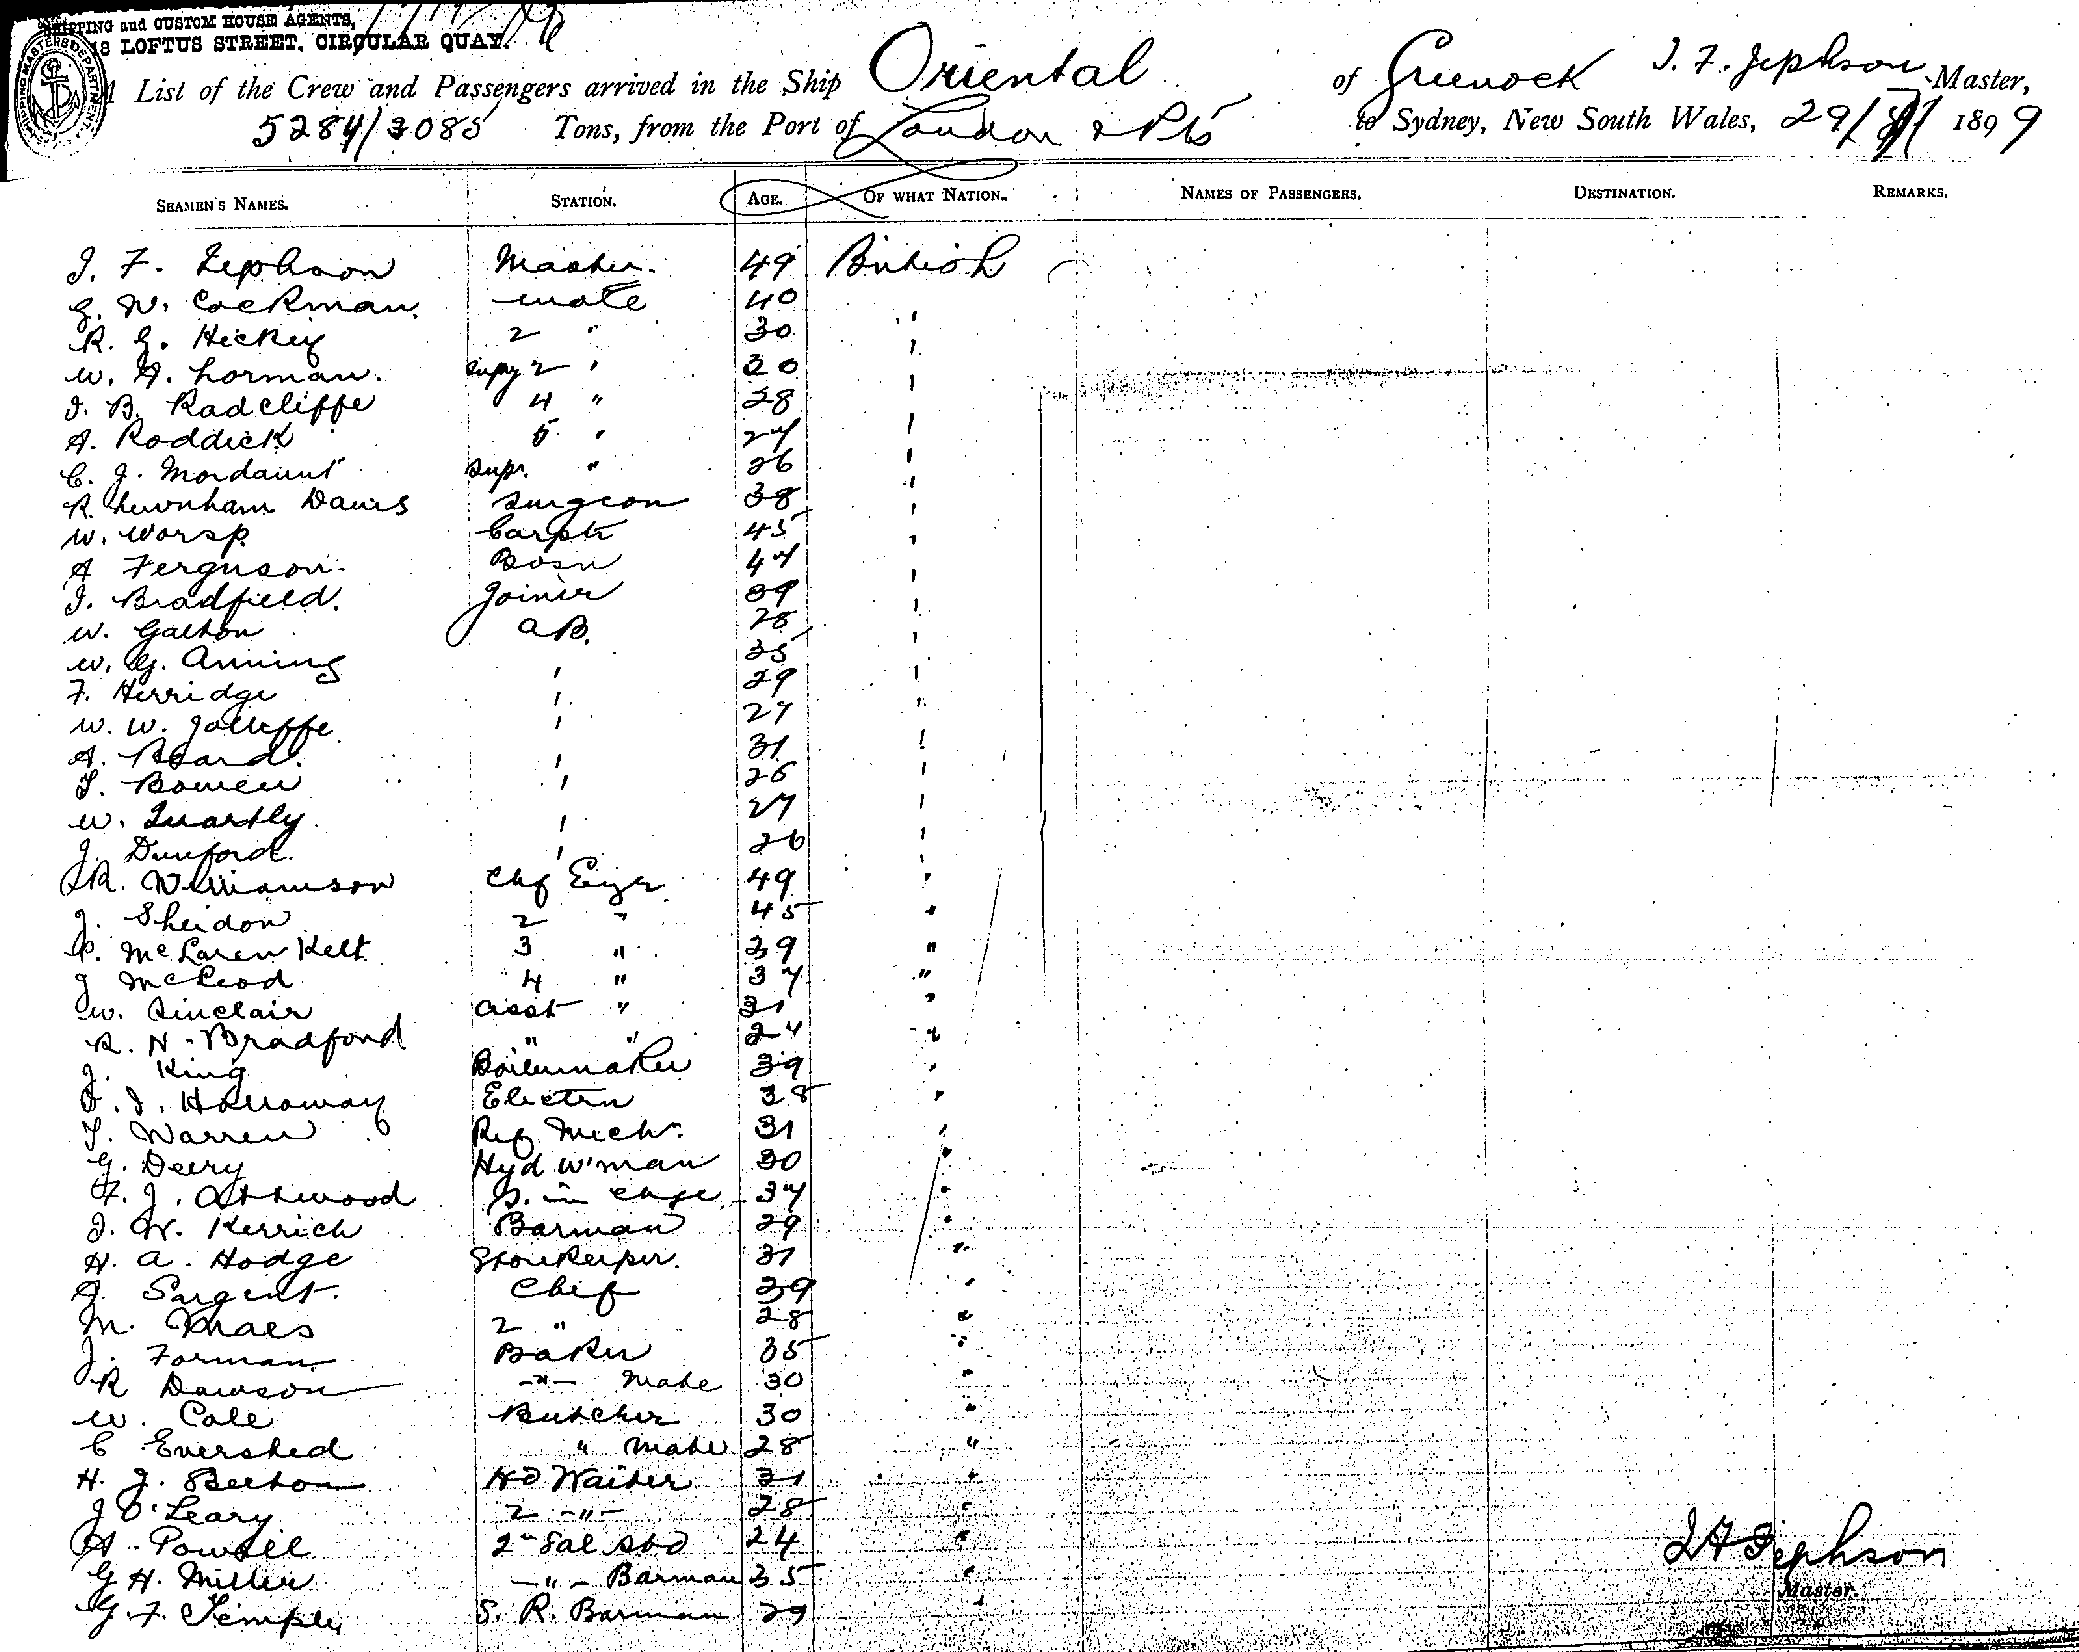 SHIPPING and CUSTOM HOUSE AGENTS,
8 LOFTUS STREET, CIRCULAR QUAY.
SHIPPING MASTERS DEPARTMENT
List of the Crew and Passengers arrived in the Ship Oriental of Greenock J. F. Jephson Master,
5284/3085 Tons, from the Port of London & Pts to Sydney, New South Wales, 29/ 1899
SEAMEN'S NAMES. STATION. AGE. OF WHAT NATION. NAMES OF PASSENGERS. DESTINATION. REMARKS.
J. F. Jephson Master. 49 British
G. W. Cockman. mate 40 "
R. G. Hickey 2 " 30 "
W. A. Lorman. supy 2 " 30 "
J. B. Radcliffe 4 " 28 "
A. Roddick 5 " 24 "
C. J. Mordaunt supr. " 26 "
R. Newnham Davis Surgeon 38 "
W. Worsp Carptr 45 "
A Ferguson Bosn 44 "
J. Bradfield. Joiner 39 "
W. Galton AB. 28 "
W. G. Anning " 35 "
F. Herridge " 29 "
W. W. Jolliffe " 27 "
A. Beard. " 31 "
T. Bowen " 26 "
W. Quartly. " 27 "
J. Dunford. " 26 "
R. Williamson Chf Engr 49 "
J. Sheidon 2 " 45 "
P. McLaren Kelt 3 " 39 "
J McLeod 4 " 34 "
W. Sinclair Asst " 31 "
R. H. Bradford " " 24 "
J. King Boilermaker 39 "
J. J. Holloway Electrn 38 "
T. Warren Ref Mech. 31 "
G. Deery Hyd W'man 30 "
F. J. Attwood S. in chge 34 "
J. W. Kerrich Barman 29 "
H. A. Hodge Storekeeper. 31 "
J. Sargent. Chef 39 "
M. Maes 2 " 28 "
J. Forman Baker 35 "
R Dawson -"- Mate 30 "
W. Cole Butcher 30 "
C Evershed " Mate 28 "
H. J. Beeton Hd Waiter 31 "
J O'Leary 2 -"- 28 "
A. Powell 2nd Sal Std 24 "
G H. Miller -"- Barman 35 "
G F. Temple S. R. Barman 29 "
J F Jephson
Master.